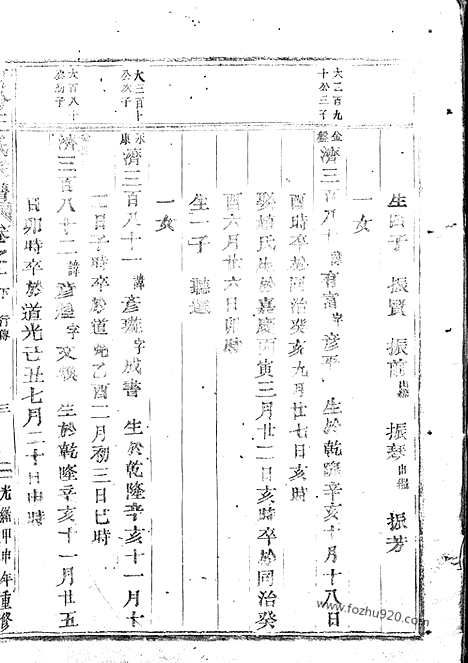 生四子 振賢 振 出繼 振 出繼 振芳
一女
大二百九十公三子
濟三百八十 諱有富字彥平 生於乾隆辛亥十月十八日
酉時卒於同治癸亥九月廿七日亥時
娶趙氏生於嘉慶丙寅三月廿二日亥時卒於同治癸
酉六月廿六日卯時
生一子
一女
大三百十公次子
永康
濟三百八十一 諱彥 字成書 生於乾隆辛亥十一月十
七日子時卒於道光乙酉二月初三日巳時
大百八十公幼子
濟三百八十二 諱彥 字文 生於乾隆辛亥十一月廿五
日卯時卒於道光己丑七月二十日申時
卷之十下 行傳 三 光緒甲申年重修
www.fozhu920.com